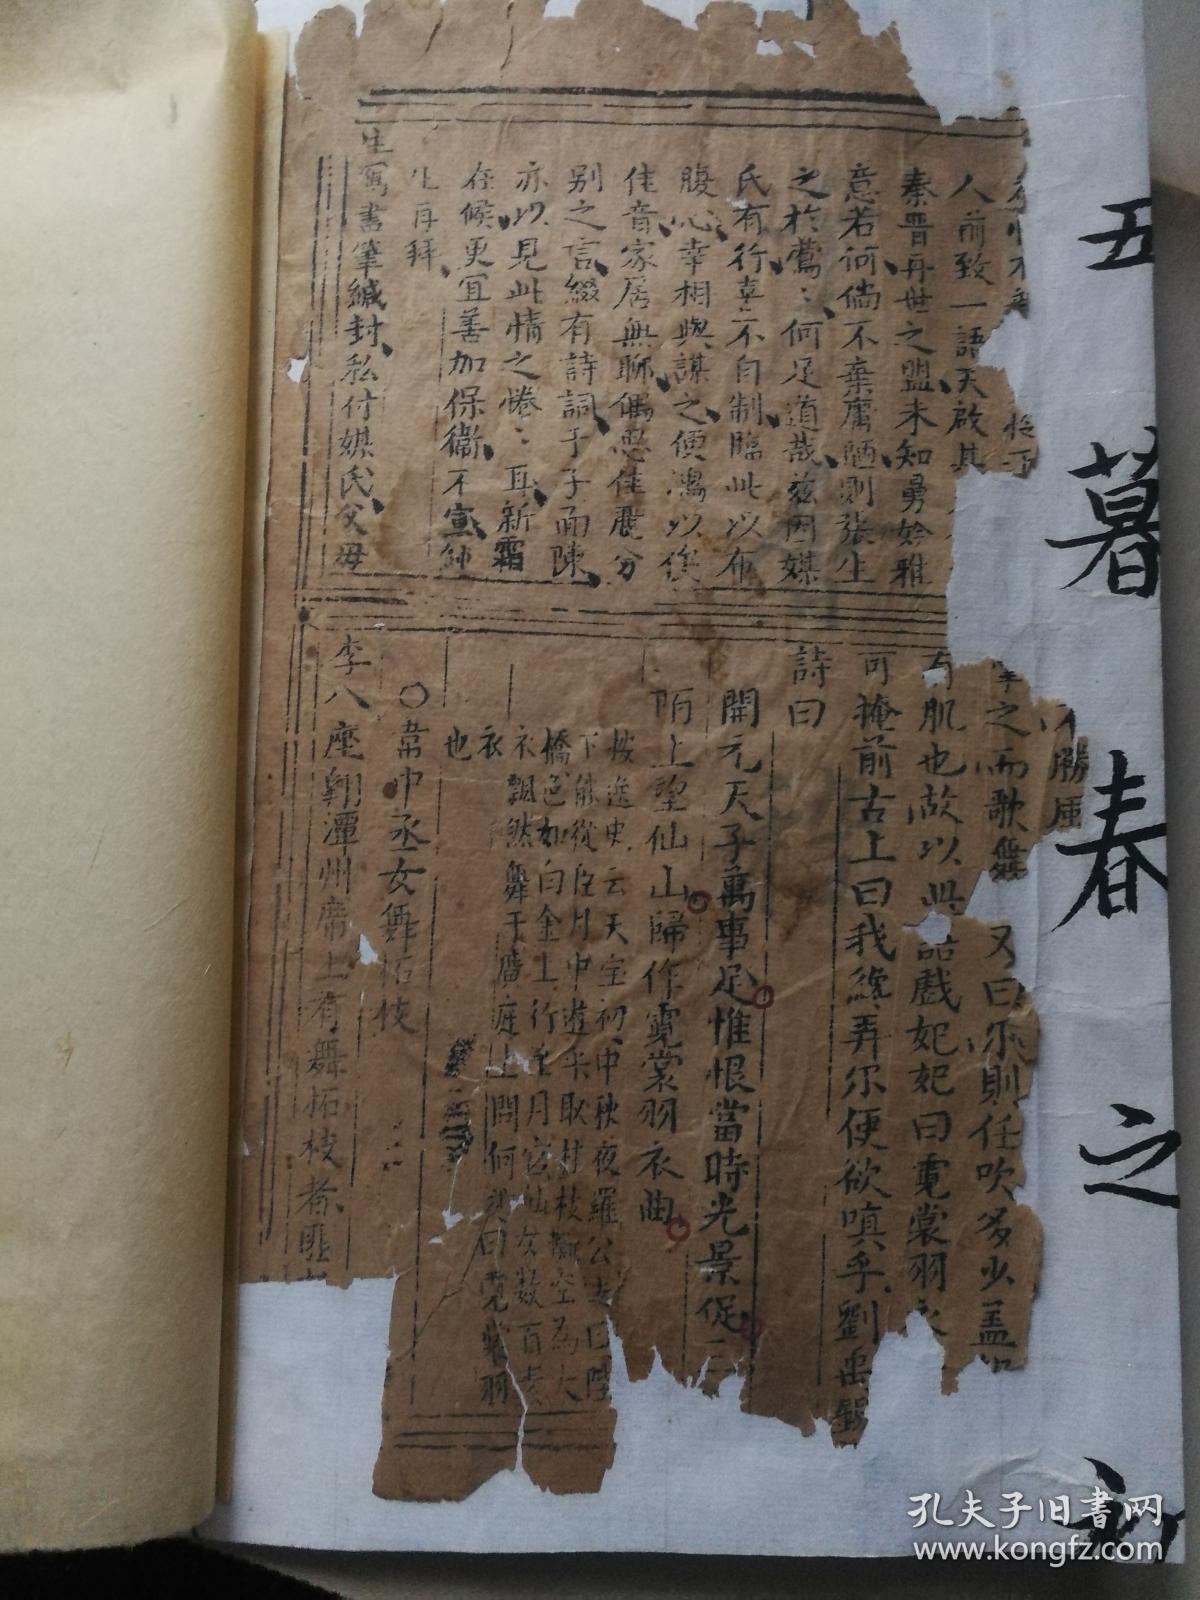 五暮春之初
人前致一語天啟其
秦晋再世之盟未知曷妗雅
意若何倘不棄庸陋則張生
之於鶯〻何足道哉兹因媒
氏有行草〻不自制臨此以布
腹心幸相與謀之便鴻以俟
佳音家居無聊偶思佳麗分
别之言綴有詩詞于子而陳
亦以見此情之惓〻耳新霜
在候更宜善加保衞不宣
再拜
生寫書筆緘封私付媒氏父母
不勝
之而歌舞 又曰尔則任吹多少盖
肌也故以此話戲妃妃曰霓裳羽衣
可掩前古上曰我纔弄尔便欲嗔乎劉禹錫
詩曰
開元天子萬事足惟恨當時光景促三
陌上望仙山歸作霓裳羽衣曲
按逸史云天宝初中秋夜羅公
下能從臣月中遊乎取 枝 空為大
橋色如白金上行至月宫仙女数百素
衣飄然舞于廣庭上問何 曰霓裳羽
衣
也
〇韋中丞女舞柘枝
李八座翱潭州席上有舞柘枝者匪
孔夫子旧书网
www.kongfz.com